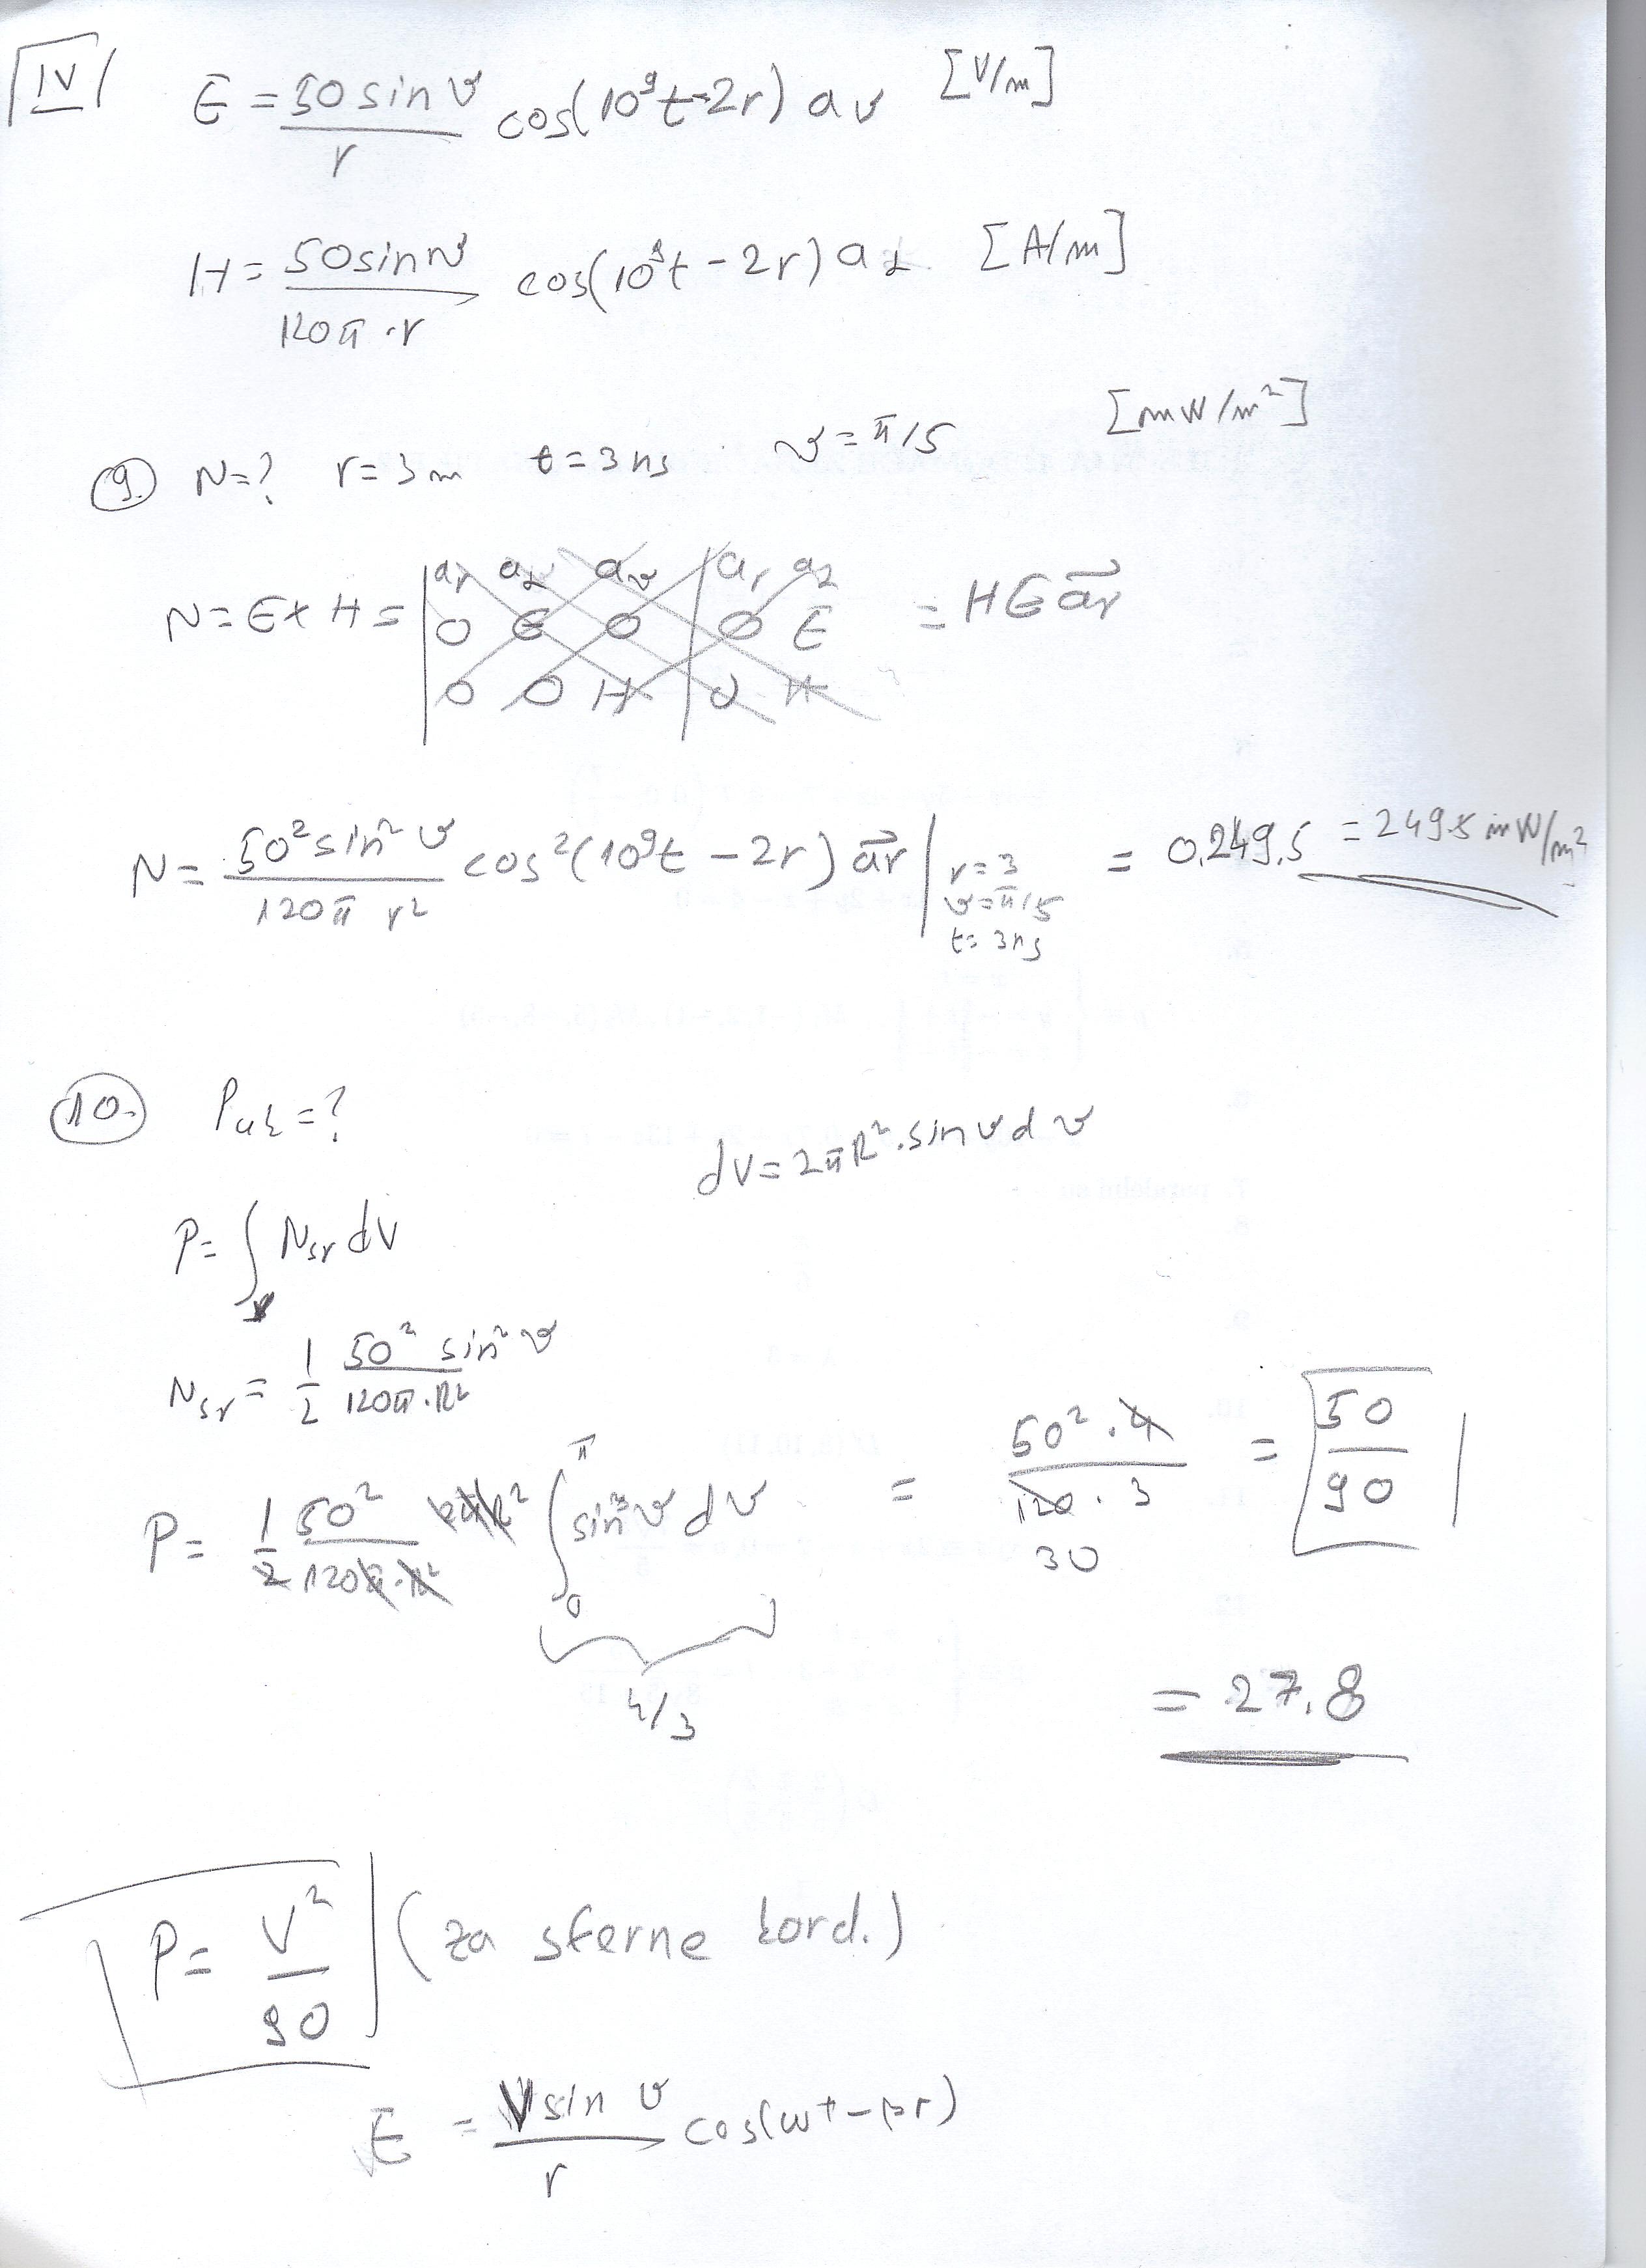 IV
E = 50 sin ϑ / r cos(10⁹t-2r) aϑ [V/m]
H = 50 sin ϑ / 120π·r cos(10⁹t-2r) a𝛼 [A/m]
9. N=? r=3m t=3ns ϑ=π/5 [mW/m²]
N = E x H = | ar a𝛼 aϑ | ar a𝛼
0 E 0 | 0 E = HE ar
0 0 H | 0 H
N = 50² sin² ϑ / 120π r² cos²(10⁹t - 2r) ar | r=3 ϑ=π/5 t=3ns = 0.249.5 = 249.5 mW/m²
10. Puk=?
dV = 2πR²·sinϑdϑ
P = ∫ Nsr dV
Nsr = 1/2 50² sin² ϑ / 120π·R²
P = 1/2 50² / 120π·R² 2πR² ∫₀^π sin³ϑ dϑ = 50²·4 / 120·3 = 50 / 90
30
4/3
= 27.8
P = V² / 90 (za sferne kord.)
E = V sin ϑ / r cos(ωt-βr)